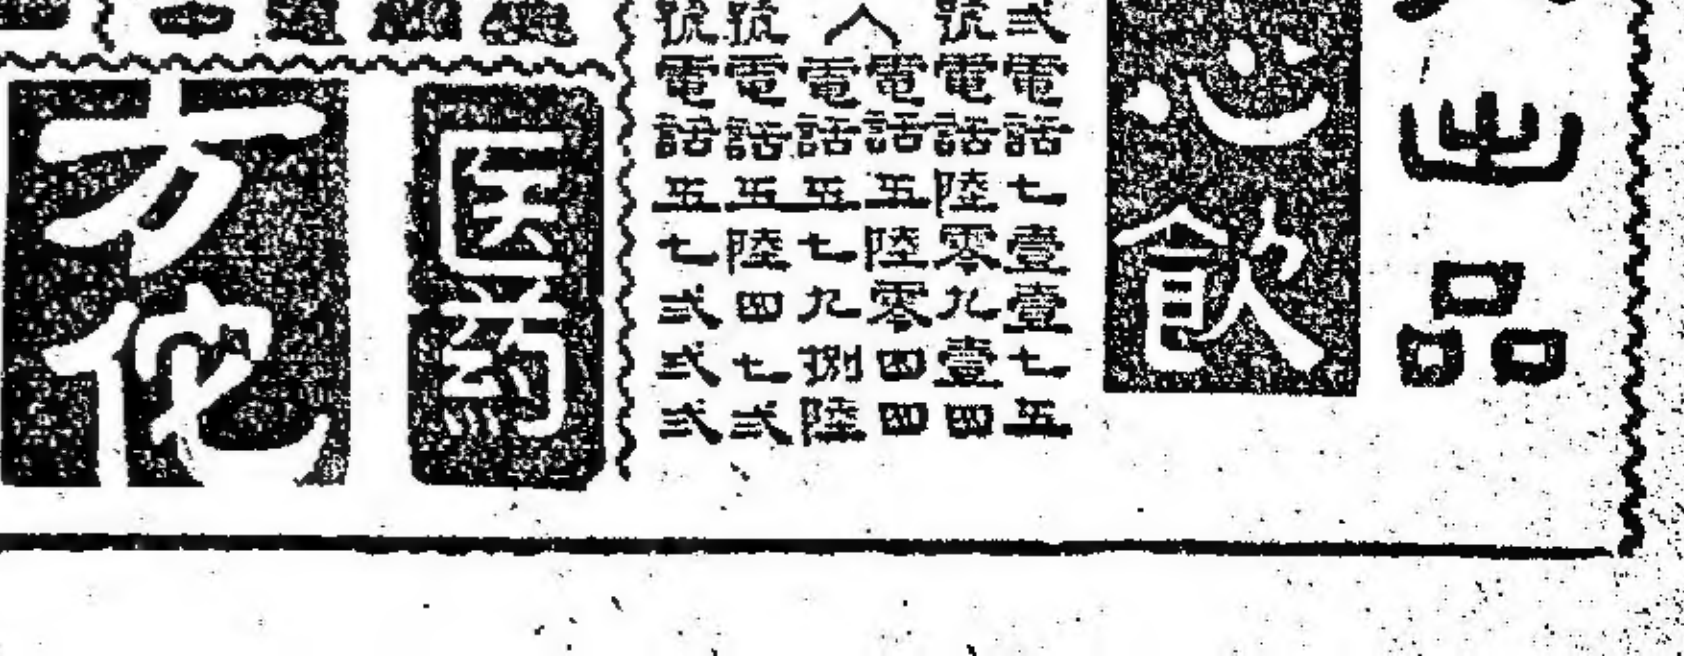 出品
心飲
弍電話七壹壹七五
號電話陸零九壹四
電話五陸零四四
電話五七九捌陸
號電話五陸四七弍
號電話五七弍弍弍
医葯
方佗